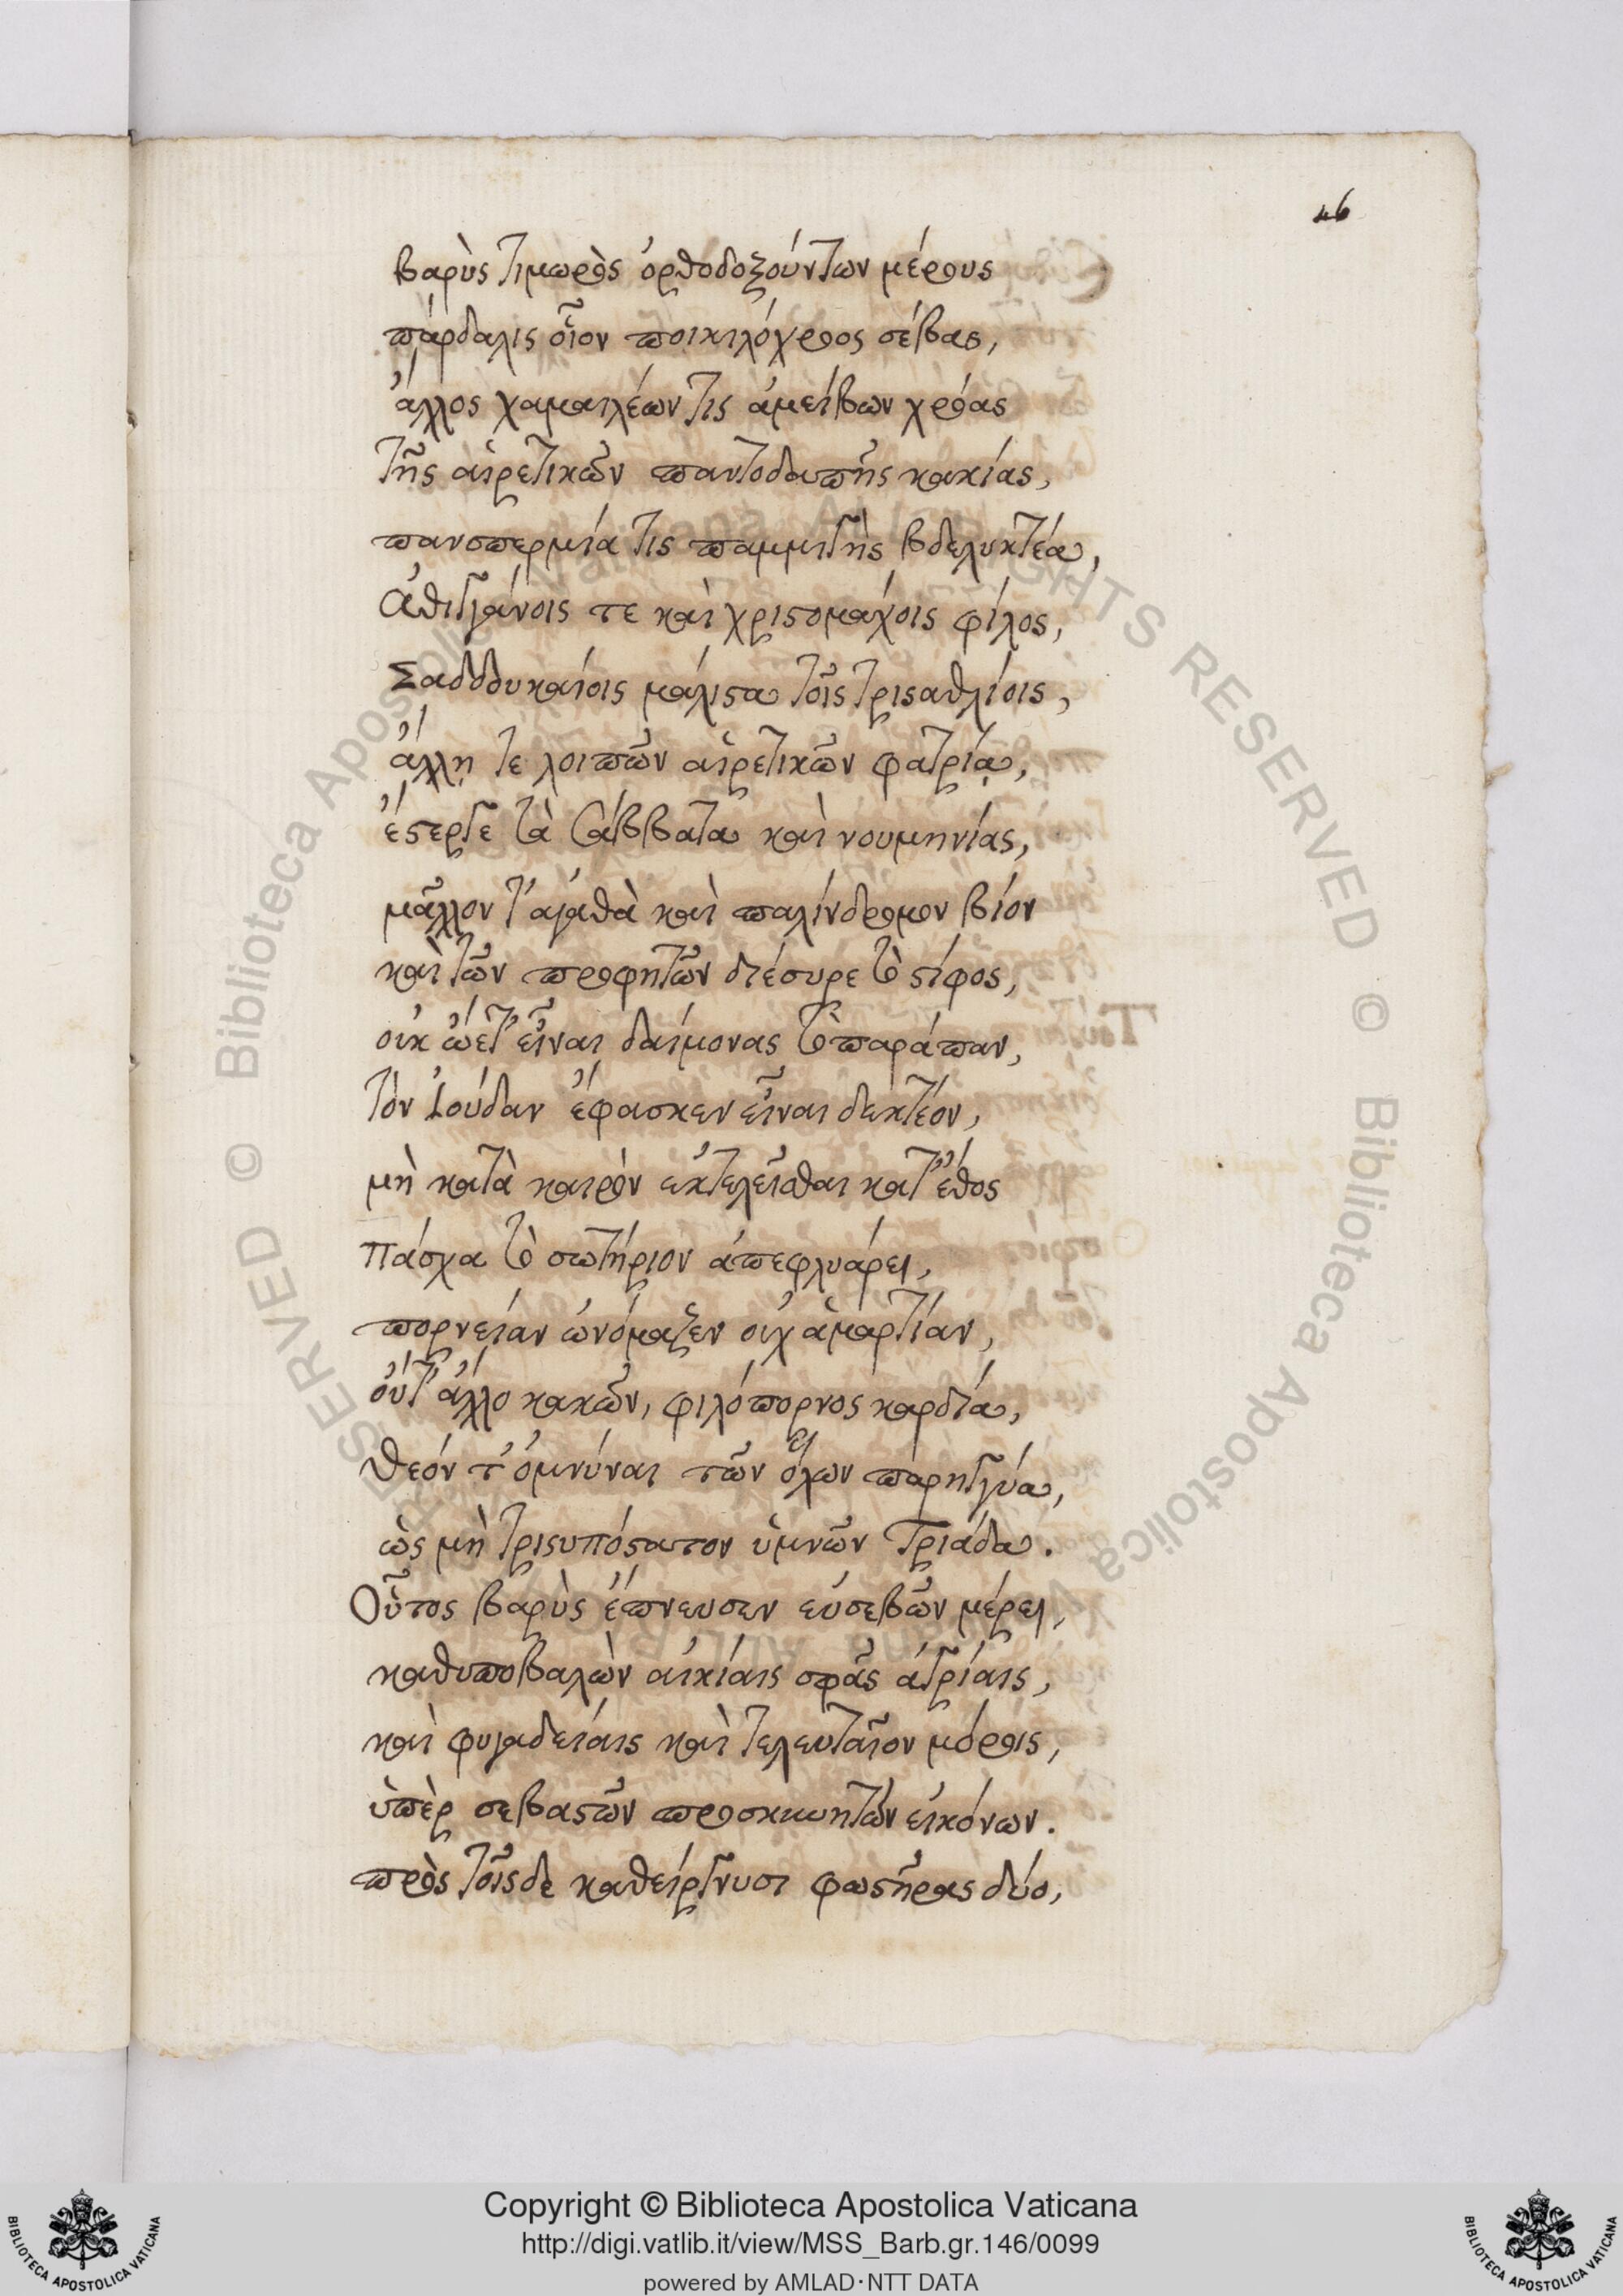 46
βαρὺς τιμωρὸς ὀρθοδοξούντων μέρους
πάρδαλις οἷον ποικιλόχροος σέβας,
ἄλλος χαμαιλέων τις ἀμείβων χρόας
τῆς αἱρετικῶν παντοδαπῆς κακίας,
πανσπερμία τις παμμιγὴς βδελυκτέα,
ἀθιγγάνοις τε καὶ χριστομάχοις φίλος,
Σαδδουκαίοις μάλιστα τοῖς τρισαθλίοις,
ἄλλῃ τε λοιπῶν αἱρετικῶν φατρίᾳ,
ἔστεργε τὰ σάββατα καὶ νουμηνίας,
μᾶλλον τ' ἀγαθὰ καὶ παλίνδρομον βίον
καὶ τῶν προφητῶν διέσυρε τὸ στίφος,
οὐκ ᾤετ' εἶναι δαίμονας τὸ παράπαν,
τὸν Ἰούδαν ἔφασκεν εἶναι δεκτέον,
μὴ κατὰ καιρὸν ἐκτελεῖσθαι κατ' ἔθος
Πάσχα τὸ σωτήριον ἀπεφλυάρει,
πορνείαν ὠνόμαζεν οὐχ ἁμαρτίαν,
οὔτ' ἄλλο κακῶν, φιλόπορνος καρδία,
θεόν τ' ὀμνύναι τῶν ὅλων παρηγγύα,
ὡς μὴ τρισυπόστατον ὑμνῶν Τριάδα.
Οὗτος βαρὺς ἔπνευσεν εὐσεβῶν μέρει,
καθυποβαλὼν αἰκίαις σφᾶς ἀγρίαις,
καὶ φυγαδείαις καὶ τελευταῖον μόροις,
ὑπὲρ σεβαστῶν προσκυνητῶν εἰκόνων.
πρὸς τοῖςδε καθείργνυσι φωστῆρας δύο,
Copyright © Biblioteca Apostolica Vaticana
http://digi.vatlib.it/view/MSS_Barb.gr.146/0099
powered by AMLAD·NTT DATA
BIBLIOTECA APOSTOLICA VATICANA
BIBLIOTECA APOSTOLICA VATICANA